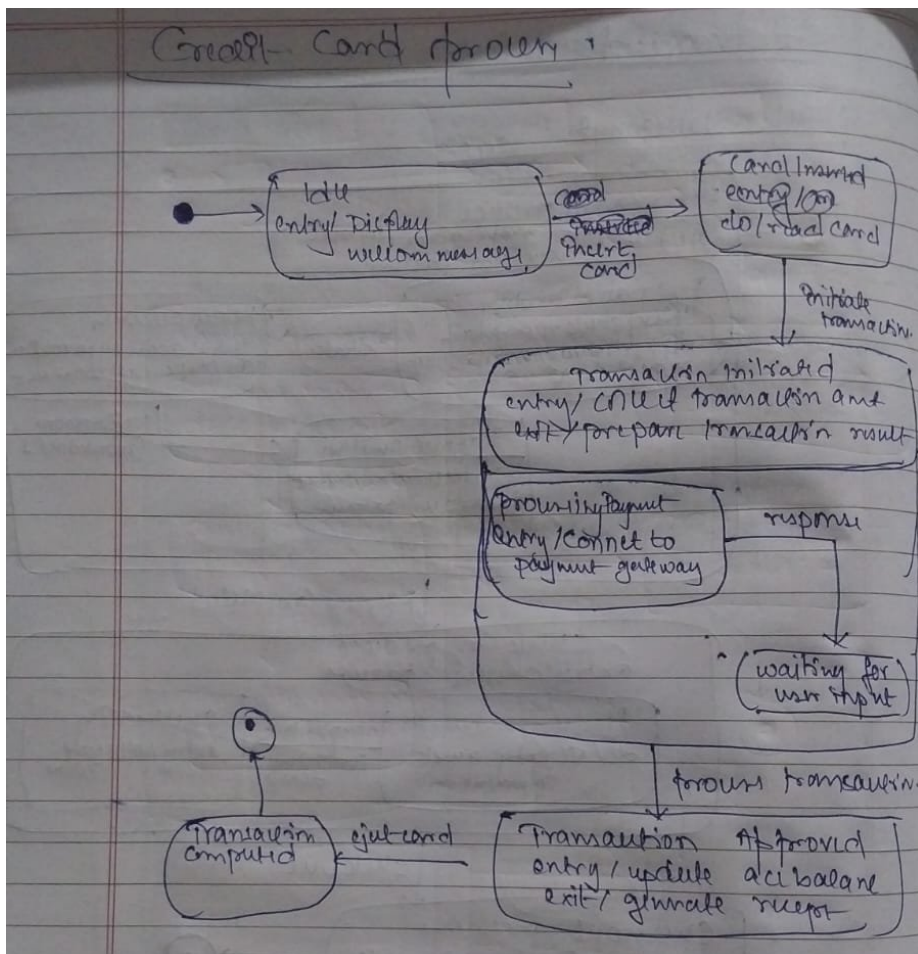 Credit Card process
Idle
entry/ Display
welcom message
Insert
card
Card Inserted
entry/on
do/read card
Initiate
transaction.
Transaction Initiated
entry/ collect transaction amt
exit/prepare transaction result
processing Payment
entry/connet to
payment gateway
response
waiting for
user input
process transaction.
Transaction Approved
entry/update acc balance
exit/ generate receipt
eject card
Transaction
completed